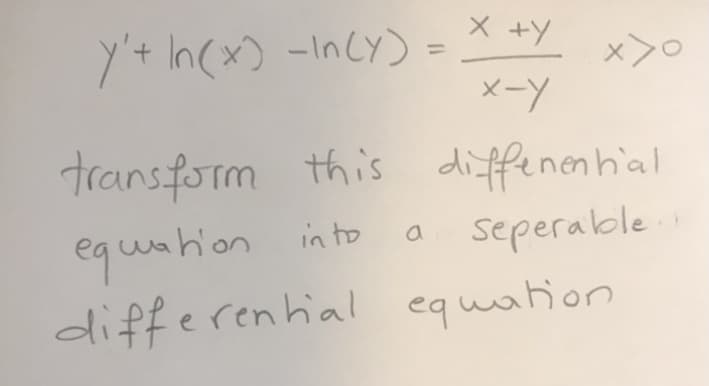 y'+ ln(x) -ln(y) = x+y / x-y x>0
transform this diffenential
equation into a seperable
differential equation